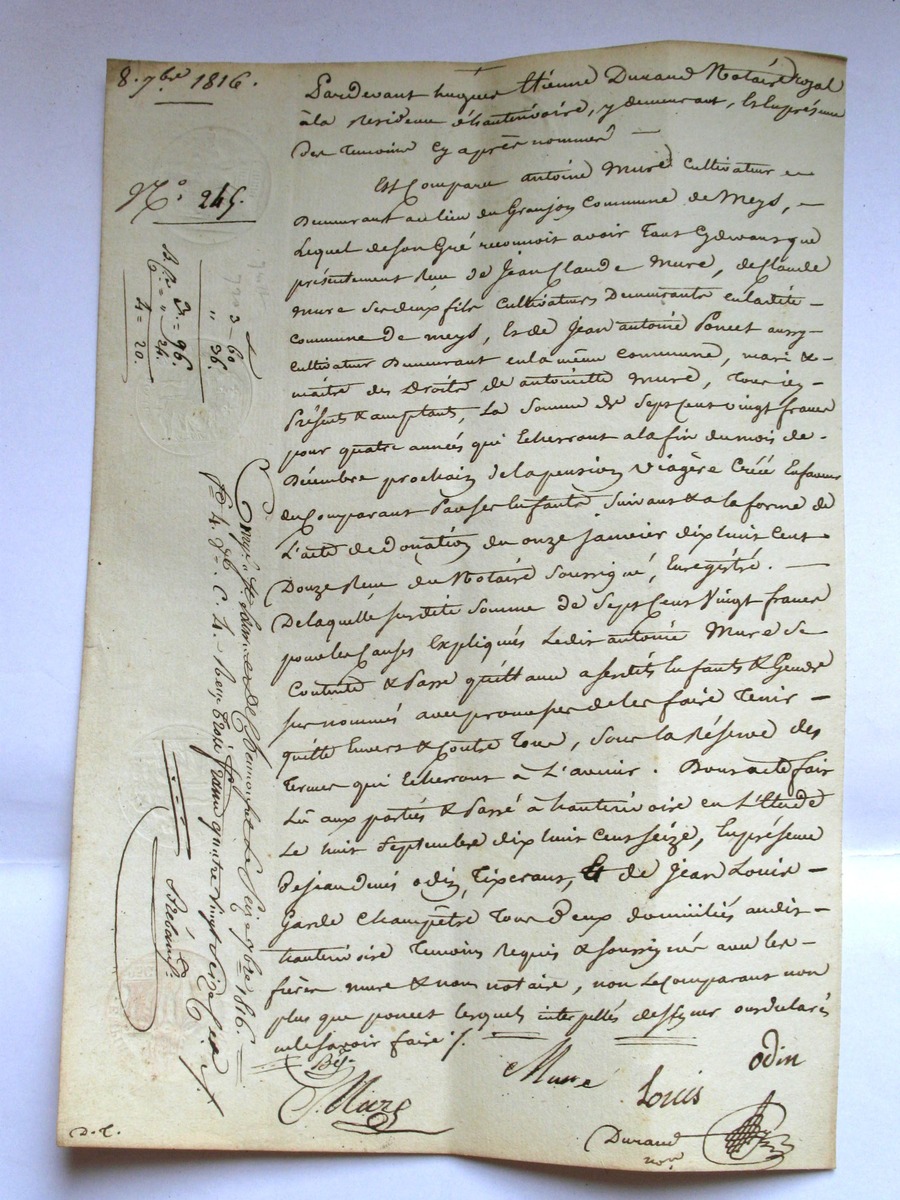 8. 7bre 1816.
N.° 245.
Pardevant hugues Etienne Durand Notaire Royal
à la Residence d'hauterivoire, y demeurant, Et En présence
des Temoins Cy après nommés —
Est Comparu antoine Mure Cultivateur
Demeurant au lieu du Granjon Commune de Meys, —
Lequel de Son Gré reconnoit avoir Tant Cydevant que
présentement Reçu de Jean Claude Mure, de Claude
mure Ses deux fils Cultivateurs Demeurants en ladite —
Commune de meys, Et de Jean antoine Poncet aussy —
Cultivateur Demeurant en la même Commune, mari &
maitre des Droits de antoinette mure, Tous icy —
Présents & aceptants, La Somme de Sept Cent vingt francs
pour quatre années qui Echerront a la fin du mois de —
Décembre prochain de la pension Viagère Créée En faveur
du Comparant Par Ses Enfants Suivant & a la forme de
L'acte de Donation du onze Janvier dix huit Cent
Douze Reçu du Notaire Soussigné, Enregistré. —
De laquelle Susdite Somme de Sept Cent Vingt francs
pour les Causes Expliqués Ledit antoine Mure Se
Contente & Passe quittance a Sesdits Enfants & Gendre
Sus nommés avec promesse de les faire Tenir —
quitte Envers & Contre Tous, Sous la Réserve des
Termes qui Echerront à L'avenir. Dont acte fait
Lû aux parties & Passé à hauterivoire en L'Etude
Le huit Septembre dix huit Cent Seize, En présence
De jean denis odin, Tixerant, Et de Jean Louis —
Garde Champêtre Tous Deux domiciliés audit —
hauterivoire Temoins Requis & Soussignés avec les —
frères mure & nous notaire, non Le Comparant non
plus que poncet lesquels interpellés de Signer ont déclaré
ne le Savoir faire /.
J. Mure
Mure
Louis
odin
Durand
no.re
D. = 96.
" 36.
4 = 20.
3 - 60
" 36.
7bre 1816.
trois francs quatre vingt Seize
D. C.